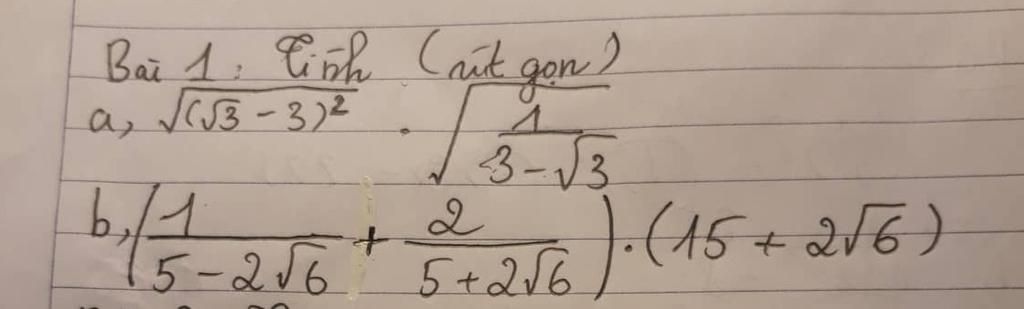 Bài 1: Tính (rút gọn)
a, √(√3 - 3)² . √(1/(3-√3))
b, (1/(5-2√6) + 2/(5+2√6)) . (15 + 2√6)